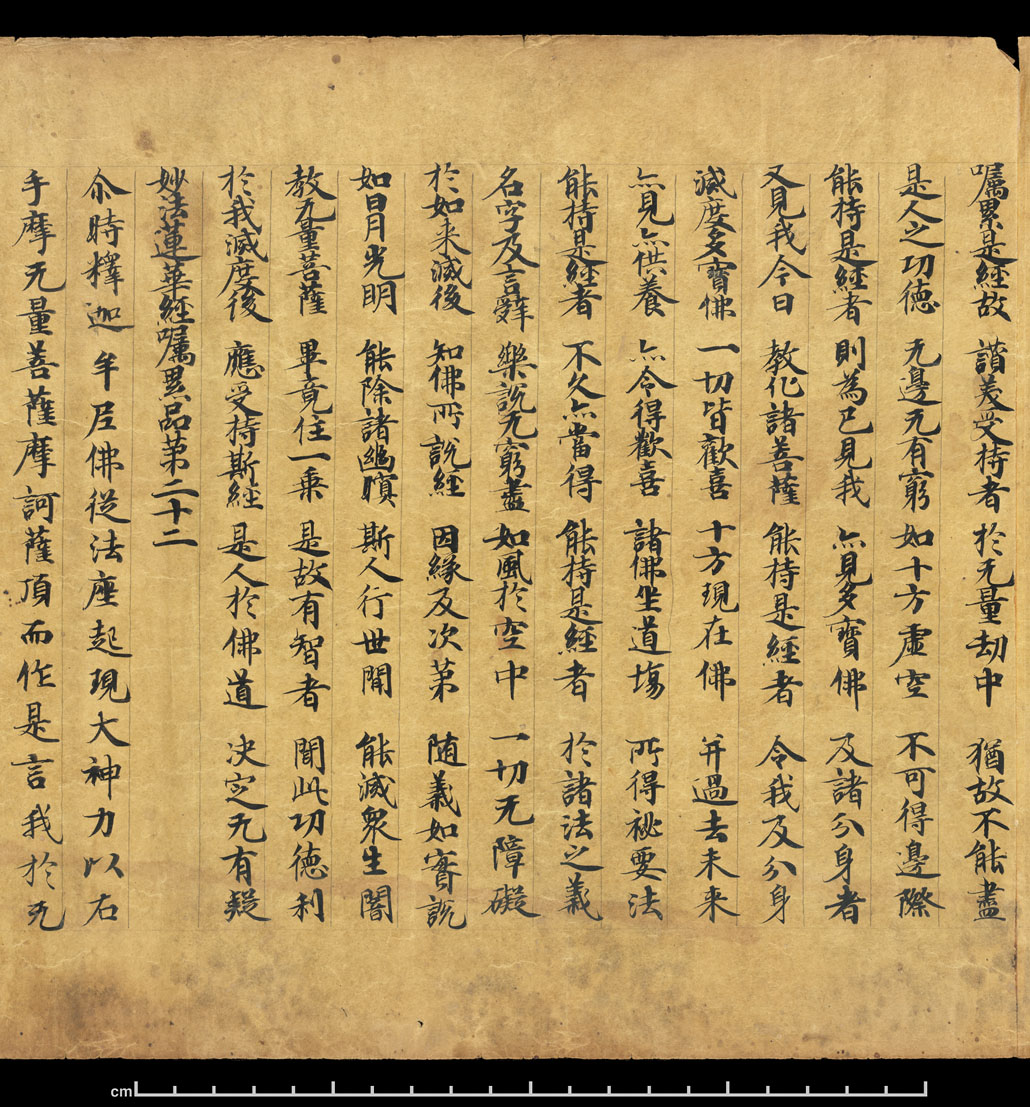 嘱累是經故 讃美受持者 於无量劫中 猶故不能盡
是人之功德 无邊无有窮 如十方虛空 不可得邊際
能持是經者 則為已見我 亦見多寶佛 及諸分身者
又見我今日 教化諸菩薩 能持是經者 令我及分身
滅度多寶佛 一切皆歡喜 十方現在佛 并過去未来
亦見亦供養 亦令得歡喜 諸佛坐道場 所得祕要法
能持是經者 不久亦當得 能持是經者 於諸法之義
名字及言辞 樂說无窮盡 如風於空中 一切无障礙
於如来滅後 知佛所說經 因緣及次苐 随義如實說
如日月光明 能除諸幽冥 斯人行世間 能滅衆生闇
教无量菩薩 畢竟住一乗 是故有智者 聞此功德利
於我滅度後 應受持斯經 是人於佛道 决定无有疑
妙法蓮華經嘱累品苐二十二
尒時釋迦牟尼佛從法座起現大神力以右
手摩无量菩薩摩訶薩頂而作是言我於无